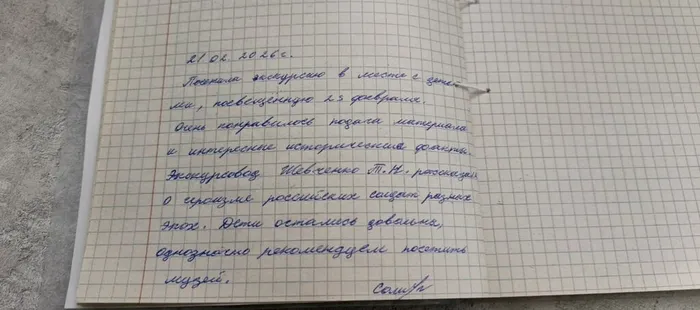 21.02.2026 г.
Посетила экскурсию в месте с детей
ми, посвещенную 23 февраля.
Очень понравилось подача материала
и интересные исторические факты.
Экскурсовод Шевченко Т.Н. рассказала
о героизме российских солдат разных
эпох. Дети остались довольны,
однозначно рекомендуем посетить
музей.